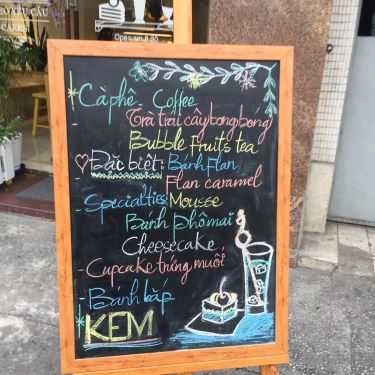 Open 8:30
Càphê Coffee
Trà trái cây bong bóng
Bubble Fruits tea
Đặc biệt: Bánh Flan
Flan caramel
- Specialties Mousse
Bánh phô mai
Cheesecake
- Cupcake trứng muối
- Bánh bắp
KEM